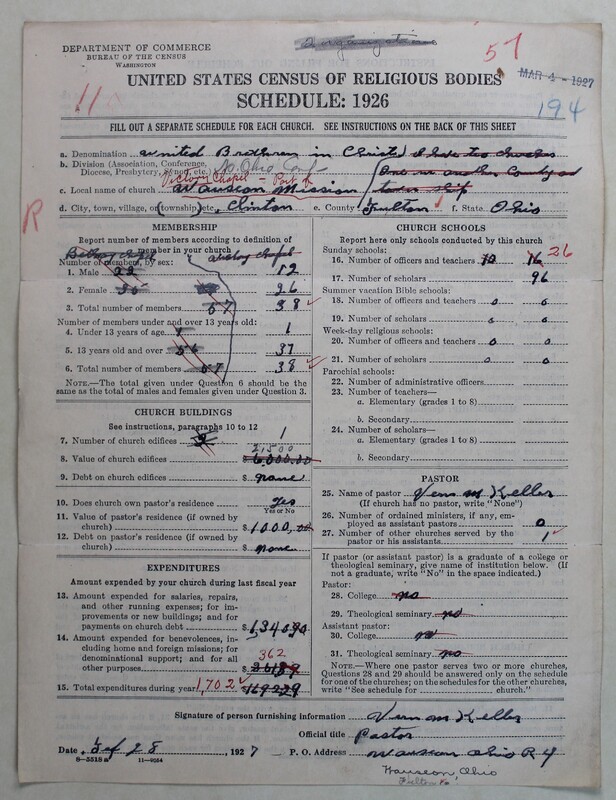 57
DEPARTMENT OF COMMERCE
BUREAU OF THE CENSUS
WASHINGTON
MAR 4 - 1927
11
UNITED STATES CENSUS OF RELIGIOUS BODIES
SCHEDULE: 1926
194
FILL OUT A SEPARATE SCHEDULE FOR EACH CHURCH. SEE INSTRUCTIONS ON THE BACK OF THIS SHEET
a. Denomination United Brethren in Christ I have two churches
b. Division (Association, Conference, Diocese, Presbytery, Synod, etc.) Ohio Conf
one in another County or
township
Victory Chapel - Part of
c. Local name of church Wauseon Mission
R
d. City, town, village, or (township) etc. Clinton e. County Fulton f. State Ohio
MEMBERSHIP
Report number of members according to definition of member in your church
Bethany Chapel Victory Chapel
Number of members, by sex:
1. Male 22 12
2. Female 35 26
3. Total number of members 57 38
Number of members under and over 13 years old:
4. Under 13 years of age 1 1
5. 13 years old and over 56 37
6. Total number of members 57 38
NOTE.—The total given under Question 6 should be the same as the total of males and females given under Question 3.
CHURCH BUILDINGS
See instructions, paragraphs 10 to 12
7. Number of church edifices 2 1
2,500
8. Value of church edifices $ 6,000.00
9. Debt on church edifices $ none
10. Does church own pastor's residence Yes
Yes or No
11. Value of pastor's residence (if owned by church) $ 1,000,00
12. Debt on pastor's residence (if owned by church) $ none
EXPENDITURES
Amount expended by your church during last fiscal year
13. Amount expended for salaries, repairs, and other running expenses; for improvements or new buildings; and for payments on church debt $ 1,340
14. Amount expended for benevolences, including home and foreign missions; for denominational support; and for all other purposes $
362
15. Total expenditures during year 1,702 $
CHURCH SCHOOLS
Report here only schools conducted by this church
Sunday schools:
16. Number of officers and teachers 10 16 26
17. Number of scholars 96
Summer vacation Bible schools:
18. Number of officers and teachers 0 0
19. Number of scholars 0 0
Week-day religious schools:
20. Number of officers and teachers 0 0
21. Number of scholars 0 0
Parochial schools:
22. Number of administrative officers
23. Number of teachers—
a. Elementary (grades 1 to 8)
b. Secondary
24. Number of scholars—
a. Elementary (grades 1 to 8)
b. Secondary
PASTOR
25. Name of pastor Vern M Keller
(If church has no pastor, write "None")
26. Number of ordained ministers, if any, employed as assistant pastors 0
27. Number of other churches served by the pastor or his assistants 1
If pastor (or assistant pastor) is a graduate of a college or theological seminary, give name of institution below. (If not a graduate, write "No" in the space indicated.)
Pastor:
28. College no
29. Theological seminary no
Assistant pastor:
30. College no
31. Theological seminary no
NOTE.—Where one pastor serves two or more churches, Questions 28 and 29 should be answered only on the schedule for one of the churches; on the schedules for the other churches, write "See schedule for church."
Signature of person furnishing information Vern M Keller
Official title Pastor
Date 28, 1927 P. O. Address Wauseon Ohio R 4
8—5518a 11—9254
Wauseon, Ohio
Fulton Co